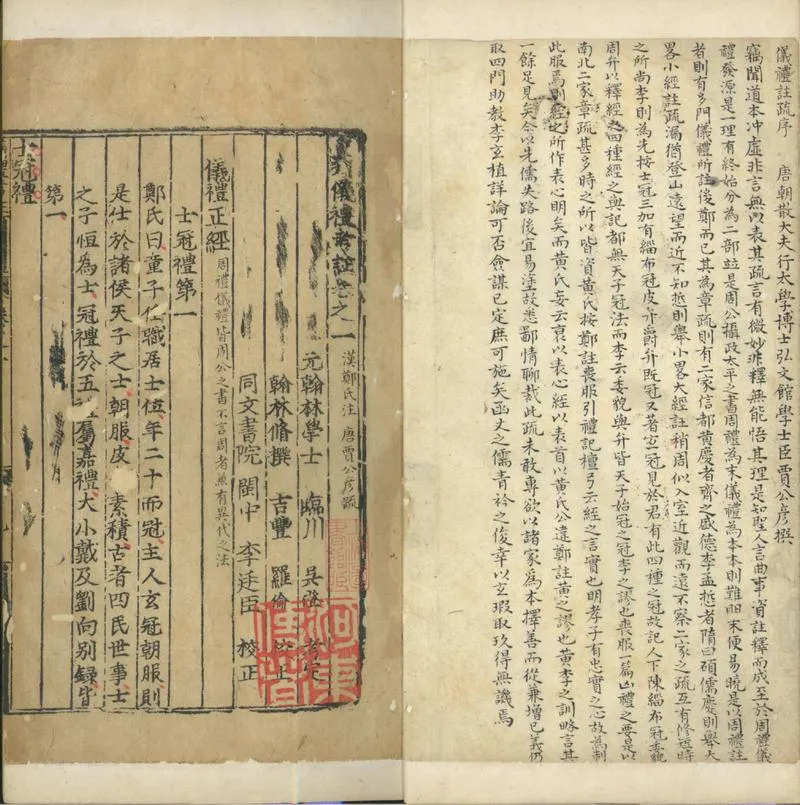 儀禮註疏序　唐朝散大夫行太學博士弘文館學士臣賈公彥撰
竊聞道本冲虛非言無以表其疏言有微妙非釋無能悟其理是知聖人言曲事資註釋而成至於周禮儀
禮發源是一理有終始分為二部並是周公攝政太平之書周禮為末儀禮為本本則難明末便易曉是以周禮註
者則有多門儀禮所註後鄭而已其為章疏則有二家信都黃慶者齊之盛德李孟悊者隋曰碩儒慶則舉大
畧小經註疏漏猶登山遠望而近不知悊則舉小畧大經註稍周似入室近觀而遠不察二家之疏互有修短時
之所尚李則為先按士冠三加有緇布冠皮弁爵弁既冠又著玄冠見於君有此四種之冠故記人下陳緇布冠委貌
周弁以釋經之四種經之與記都無天子冠法而李云委貌與弁皆天子始冠之冠李之謬也喪服一篇凶禮之要是以
南北二家章疏甚多時之所以皆資黃氏按鄭註喪服引禮記檀弓云經之言實也明孝子有忠實之心故為制
此服焉則經之所作表心明矣而黃氏妄云衰以表心絰以表首以黃氏公違鄭註黃之謬也黃李之訓略言其
一餘足見矣今以先儒失路後宜易塗故悉鄙情聊裁此疏未敢專欲以諸家為本擇善而從兼增己義仍
取四門助教李玄植詳論可否僉謀已定庶可施矣函丈之儒青衿之俊幸以玄瑕取玖得無譏焉
儀禮考註卷之一　漢鄭氏注　唐賈公彥疏
元翰林學士　臨川　吳澄　考定
翰林脩撰　吉豐　羅倫　校正
同文書院　閩中　李廷臣　校正
儀禮正經周禮儀禮皆周公之書不言周者兼有異代之法
士冠禮第一
鄭氏曰童子任職居士位年二十而冠主人玄冠朝服則
是仕於諸侯天子之士朝服皮　素積古者四民世事士
之子恒為士冠禮於五　屬嘉禮大小戴及劉向別錄皆
第一
士冠禮